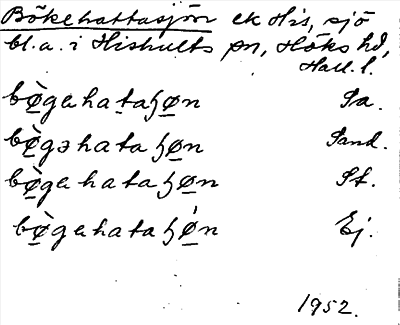 Bökehattasjön ek His, sjö
bl.a. i Hishults sn, Höks hd,
Hall. l.
bø̠̀gahataɧø̠n Sa.
bø̠̀gəhataɧø̠n Sand.
bø̠̀gahataɧø̠n St.
bø̠̀gahataɧǿ̠n Ej.
1952.